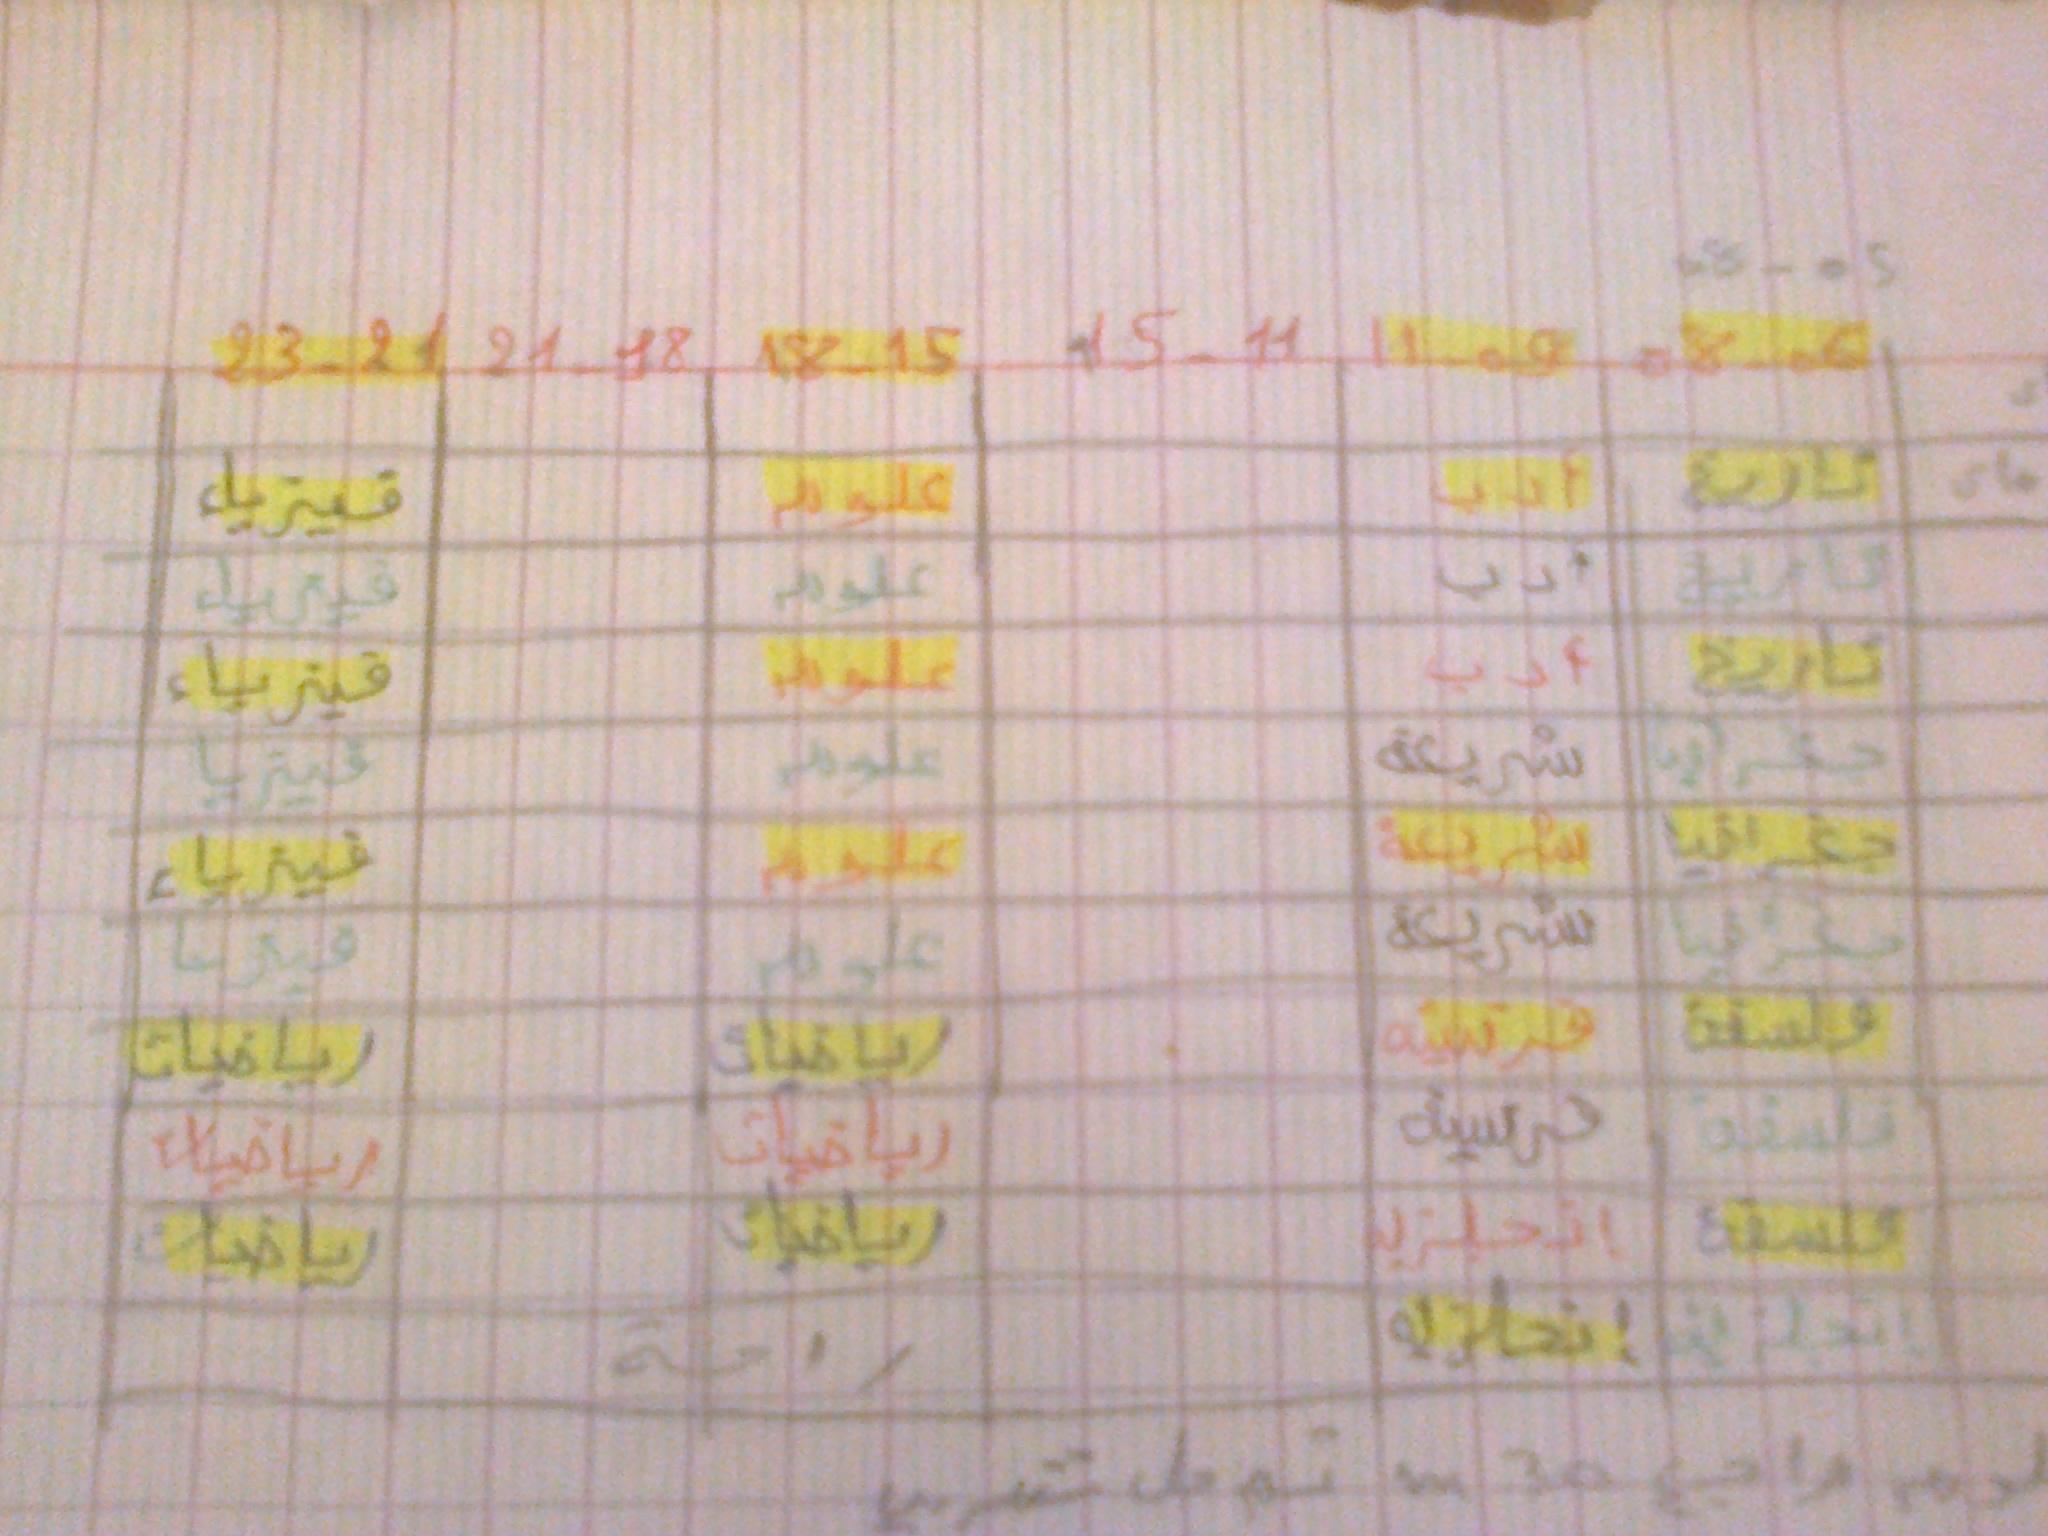 08 - 05
08 - 06 11 - 09 15 - 11 18 - 15 21 - 18 23 - 21
تاريخ أدب علوم فيزياء
تاريخ أدب علوم فيزياء
تاريخ أدب علوم فيزياء
جغرافيا شريعة علوم فيزيا
جغرافيا شريعة علوم فيزياء
جغرافيا شريعة علوم فيزيا
فلسفة فرنسية رياضيات رياضيات
فلسفة فرنسية رياضيات رياضيات
فلسفة انجليزية رياضيات رياضيات
إنجليزية إنجليزية راحة